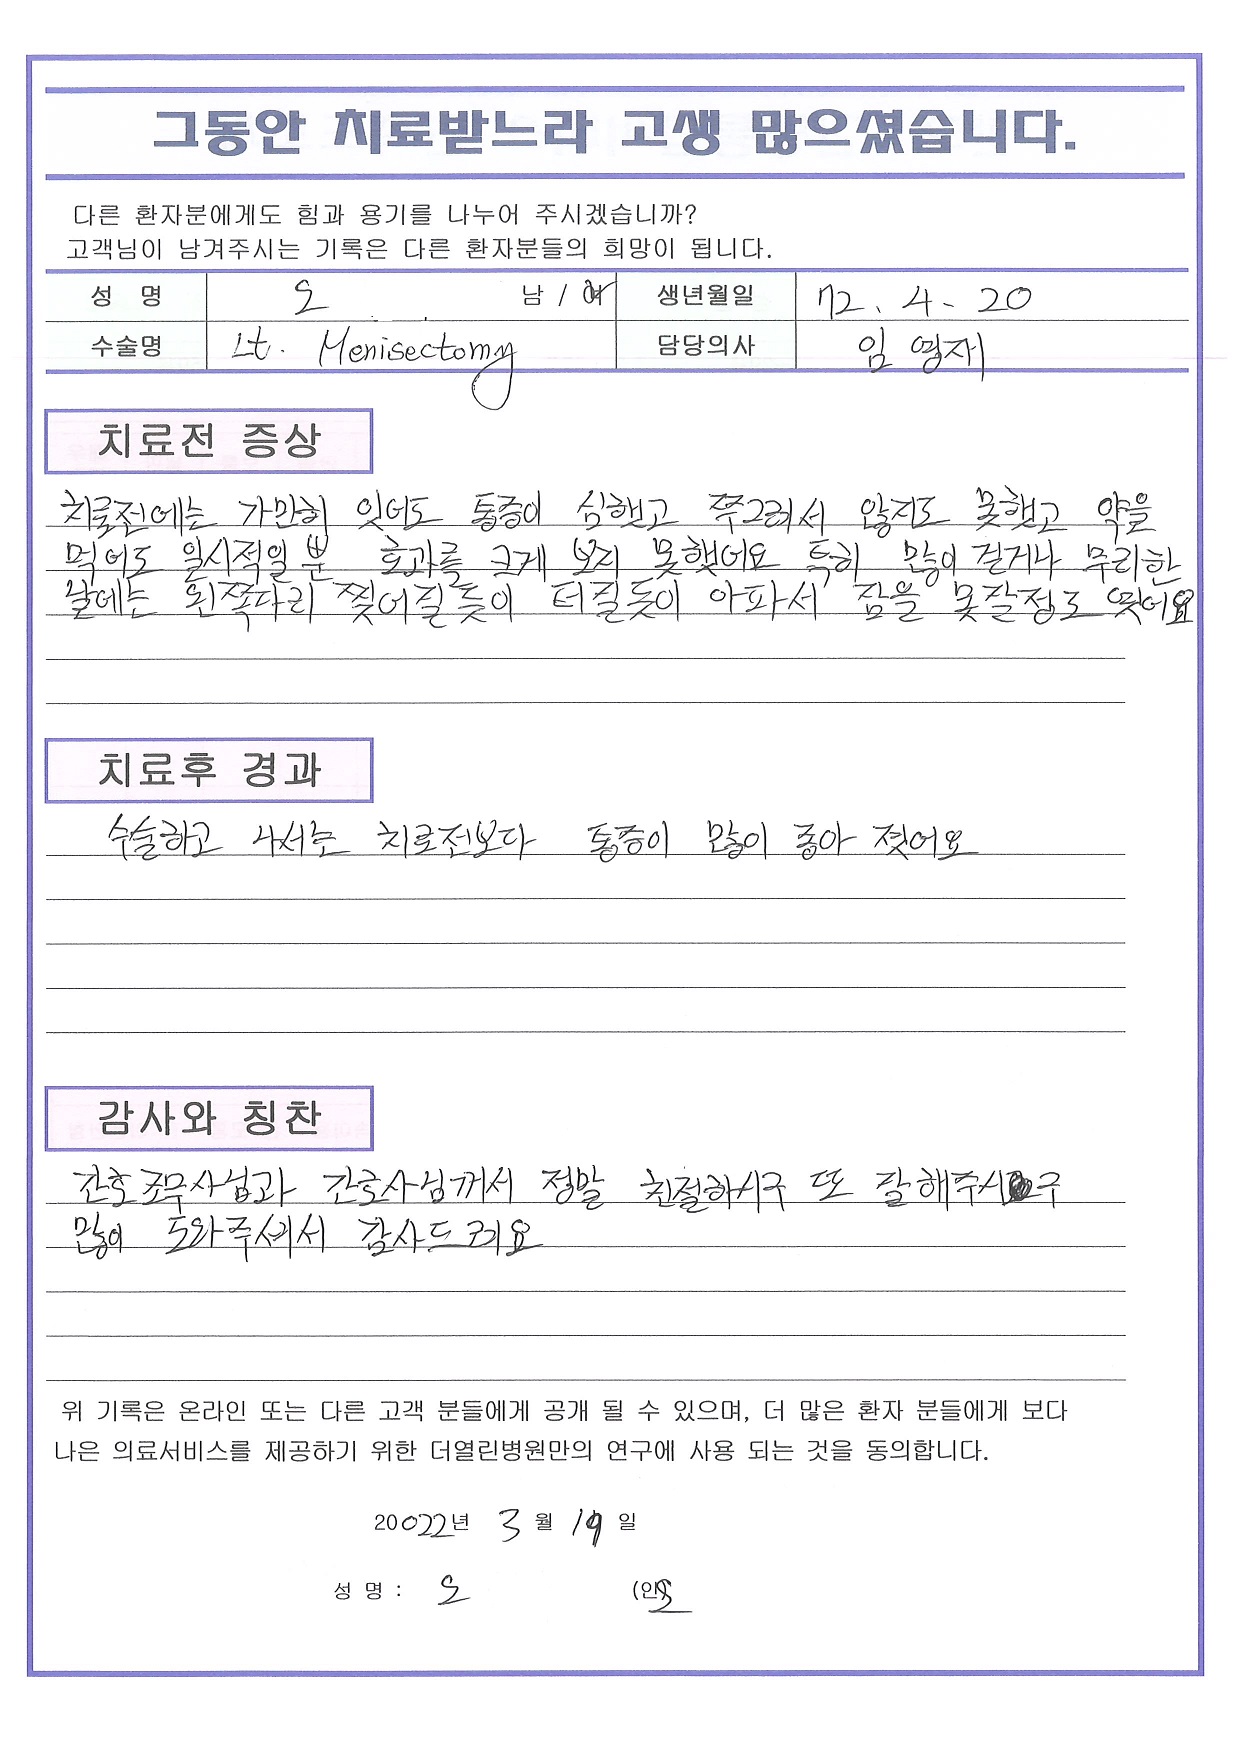 그동안 치료받느라 고생 많으셨습니다.
다른 환자분에게도 힘과 용기를 나누어 주시겠습니까?
고객님이 남겨주시는 기록은 다른 환자분들의 희망이 됩니다.
성 명 오 남 / 여 생년월일 72. 4. 20
수술명 Lt. Menisectomy 담당의사 임영재
치료전 증상
치료전에는 가만히 잇어도 통증이 심했고 쭈그려서 않지도 못했고 약을
먹어도 일시적일뿐 효과를 크게 보지 못했어요 특히 많이 걷거나 무리한
날에는 왼쪽다리 찢어질듯이 터질듯이 아파서 잠을 못잘정도 였어요
치료후 경과
수술하고 나서는 치료전보다 통증이 많이 좋아 졌어요
감사와 칭찬
간호조무사님과 간호사님께서 정말 친절하시구 또 잘해주시구
많이 도와주셔서 감사드려요
위 기록은 온라인 또는 다른 고객 분들에게 공개 될 수 있으며, 더 많은 환자 분들에게 보다
나은 의료서비스를 제공하기 위한 더열린병원만의 연구에 사용 되는 것을 동의합니다.
20022년 3월 19일
성 명 : 오 (인)오